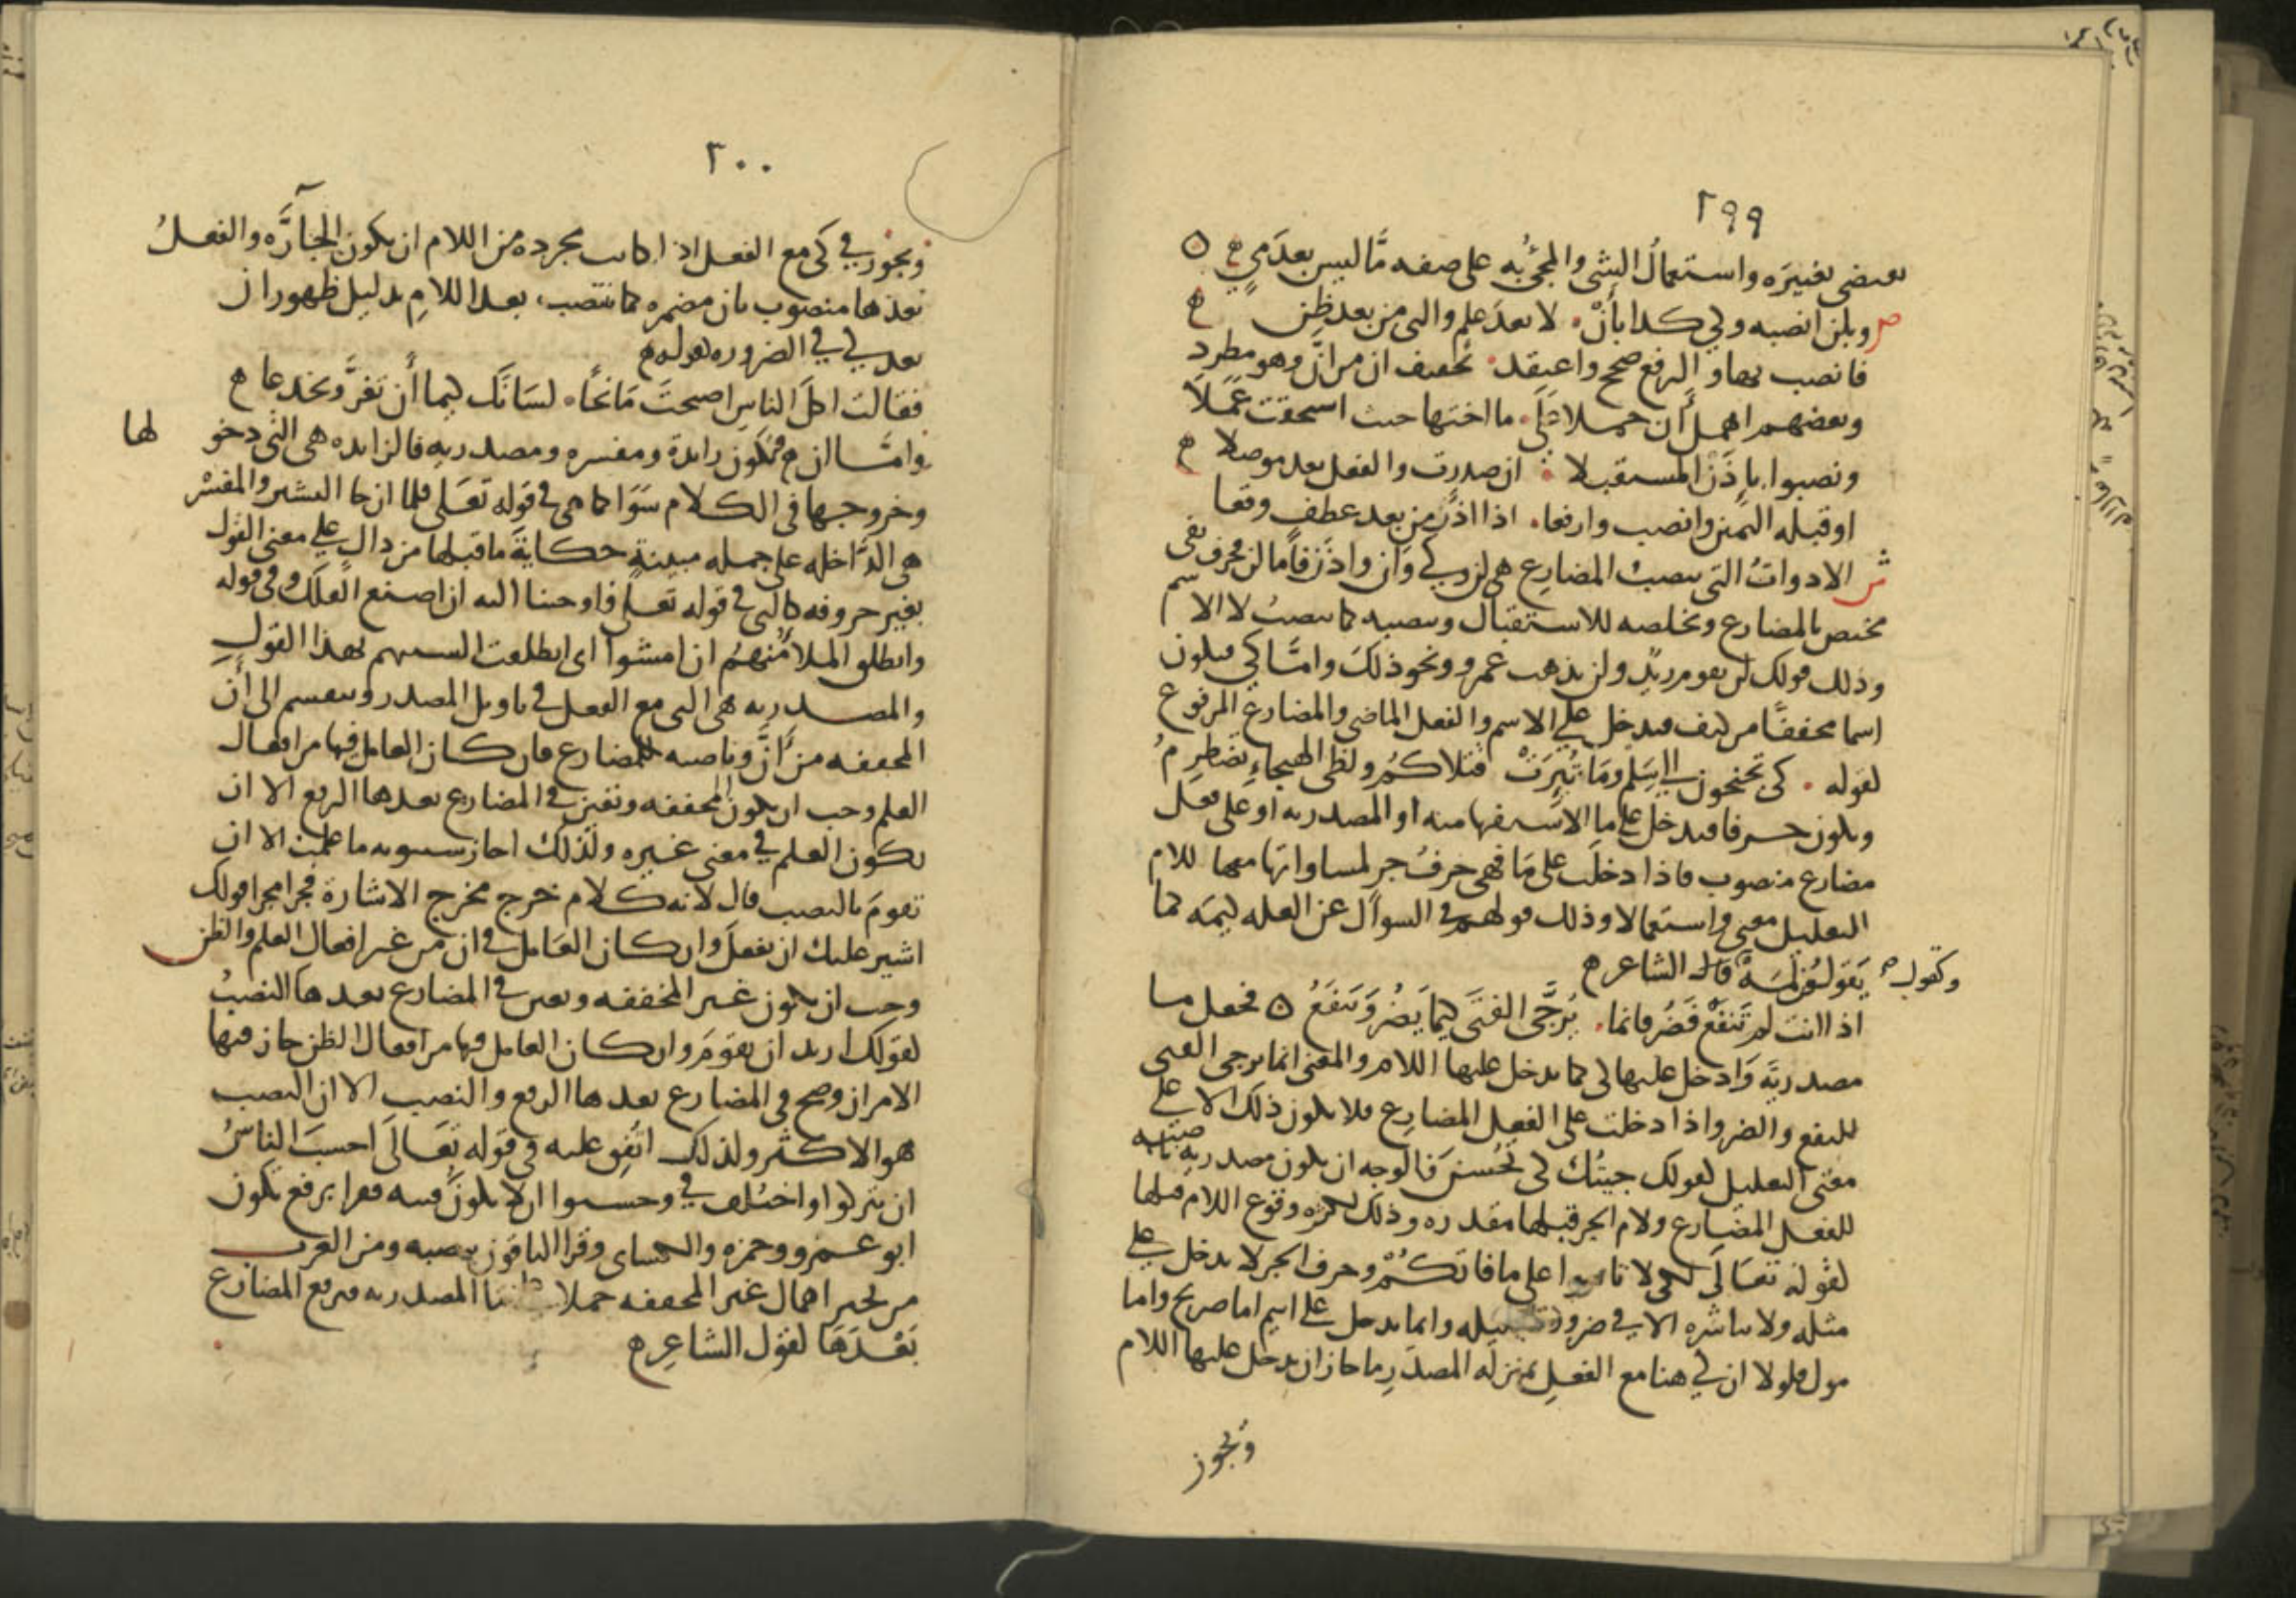 ٢٩٩
بعضى تغييره واستعمال الشى والمجئ به على صفه ما ليس بعد مى ه
ص وبلن انصبه وكى كذا بأن لا بعد علم والتى من بعد ظن ه
فانصب بها والرفع صحح واعتقد تخفيف ان من أن وهو مطرد
وبعضهم اهمل أن حملا على ما اختها حيث استحقت عملا
ونصبوا بإذن المستقبلا ان صدرت والفعل بعد موصلا ه
او قبله اليمين وانصب وارفعا اذا اذن من بعد عطف وقعا
ش الادوات التى تنصب المضارع هى لن وكى وأن واذن فاما لن فحرف نفى
مختص بالمضارع وتخلصه للاستقبال وتنصبه كما تنصب لا الاسم
وذلك قولك لن يقوم زيد ولن يذهب عمرو ونحو ذلك وامّا كى فتكون
اسما مخففا من كيف فتدخل على الاسم والفعل الماضى والمضارع المرفوع
لقوله كى تجنحون الى سلم وما ثئرت قتلاكم ولظى الهيجاء تضطرم
وتكون حرفا فتدخل على ما الاستفهاميه او المصدريه او على فعل
مضارع منصوب فاذا دخلت على ما فهى حرف جر لمساواتها معها للام
التعليل معنى واستعمالا وذلك قولهم فى السوال عن العله كيمه كما
وكقول
يقولون لمه قال الشاعر ه
اذا انت لم تنفع فضر فانما يرجّى الفتى كيما يضر وينفع ه فجعل ما
مصدريّة وادخل عليها كى كما تدخل عليها اللام والمعنى انما يرجى الفتى
للنفع والضر واذا دخلت على الفعل المضارع فلا يكون ذلك الا على
معنى التعليل كقولك جيتك كى تحسن فالوجه ان تكون مصدريه ناصبه
للفعل المضارع ولام الجر قبلها مقدره وذلك لكثره وقوع اللام قبلها
لقوله تعالى لكى لا تاسوا على ما فاتكم وحرف الجر لا يدخل على
مثله ولا يباشره الا فى ضروره قليله وانما يدخل على اسم اما صريح واما
مول فلولا ان كى هنا مع الفعل بمنزله المصدر ما جاز ان تدخل عليها اللام
ويجوز
٢٠٠
ويجوز فى كى مع الفعل اذا كانت مجرده من اللام ان تكون الجارّه والفعل
بعدها منصوب بان مضمره كما ينتصب بعد اللام بدليل ظهور ان
بعد كى فى الضروره لقوله ه
فقالت اكل الناس اصبحت مانحا لسانك كيما أن تغرّ وتخدعا ه
وامّا ان فتكون زايدة ومفسره ومصدريه فالزايده هى التى دخولها
وخروجها فى الكلام سوا كما هى فى قوله تعلى فلما ان جا البشير والمفسر
هى الدّاخله على جمله مبينة حكاية ما قبلها من دال على معنى القول
بغير حروفه كالتى فى قوله تعلى فاوحينا اليه ان اصنع الفلك وفى قوله
وانطلق الملا منهم ان امشوا اى انطلقت السنتهم بهذا القول
والمصدريه هى التى مع الفعل فى تاويل المصدر وتنقسم الى أن
المخففه من أنّ وناصبه للمضارع فان كان العامل فيها من افعال
العلم وجب ان تكون المخففه وتعين فى المضارع بعدها الرفع الا ان
يكون العلم فى معنى غيره ولذلك اجاز سيبويه ما علمت الا ان
تقوم بالنصب قال لانه كلام خرج مخرج الاشارة فجرا مجرا قولك
اشير عليك ان تفعل وان كان العامل فى ان من غير افعال العلم والظن
وجب ان تكون غير المخففه وتعين فى المضارع بعدها النصب
لقولك اريد ان تقوم وان كان العامل فيها من افعال الظن جاز فيها
الامران وصح فى المضارع بعدها الرفع والنصب الا ان النصب
هو الاكثر ولذلك اتفق عليه فى قوله تعالى احسب الناس
ان يتركوا واختلف فى وحسبوا ان لا تكون فتنه فقرا برفع تكون
ابو عمرو وحمزه والكساى وقرا الباقون بنصبه ومن العرب
من يجيز اهمال غير المخففه حملا على ما المصدريه فيرفع المضارع
بعدها لقول الشاعر ه